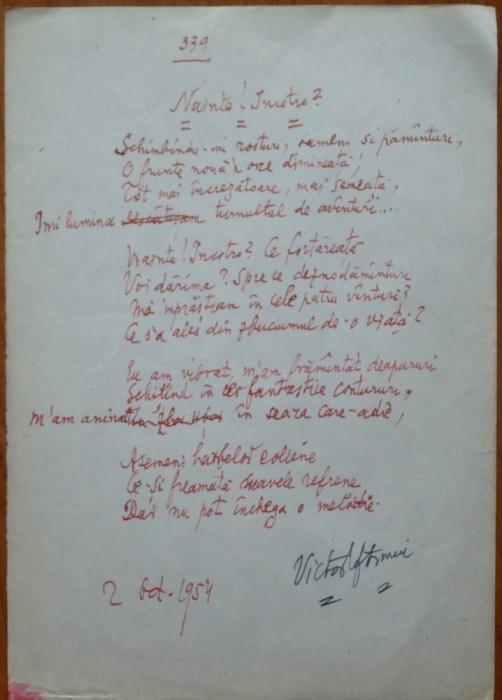 339
Nainte! Incotro?
Schimbîndu-mi rosturi, oameni si pămînturi,
O frunte nouă'n orce dimineată,
Tot mai încrezătoare, mai semeată,
Imi lumina tumultul de avînturi...
Nainte! Incotro? Ce fortăreată
Voi dărîma? Spre ce deznodămînturi
Mă'mprăștiam în cele patru vînturi?
Ce s'a ales din zbuciumul de-o viață?
Eu am vibrat, m'am frămîntat deapururi
Schitînd în cer fantastice contururi,
M'am aninat în seara care-adie,
Asemeni harfelor eoliene
Ce-si freamătă suavele refrene
Dar nu pot închega o melodie.
Victor Eftimiu
2 Oct. 1954